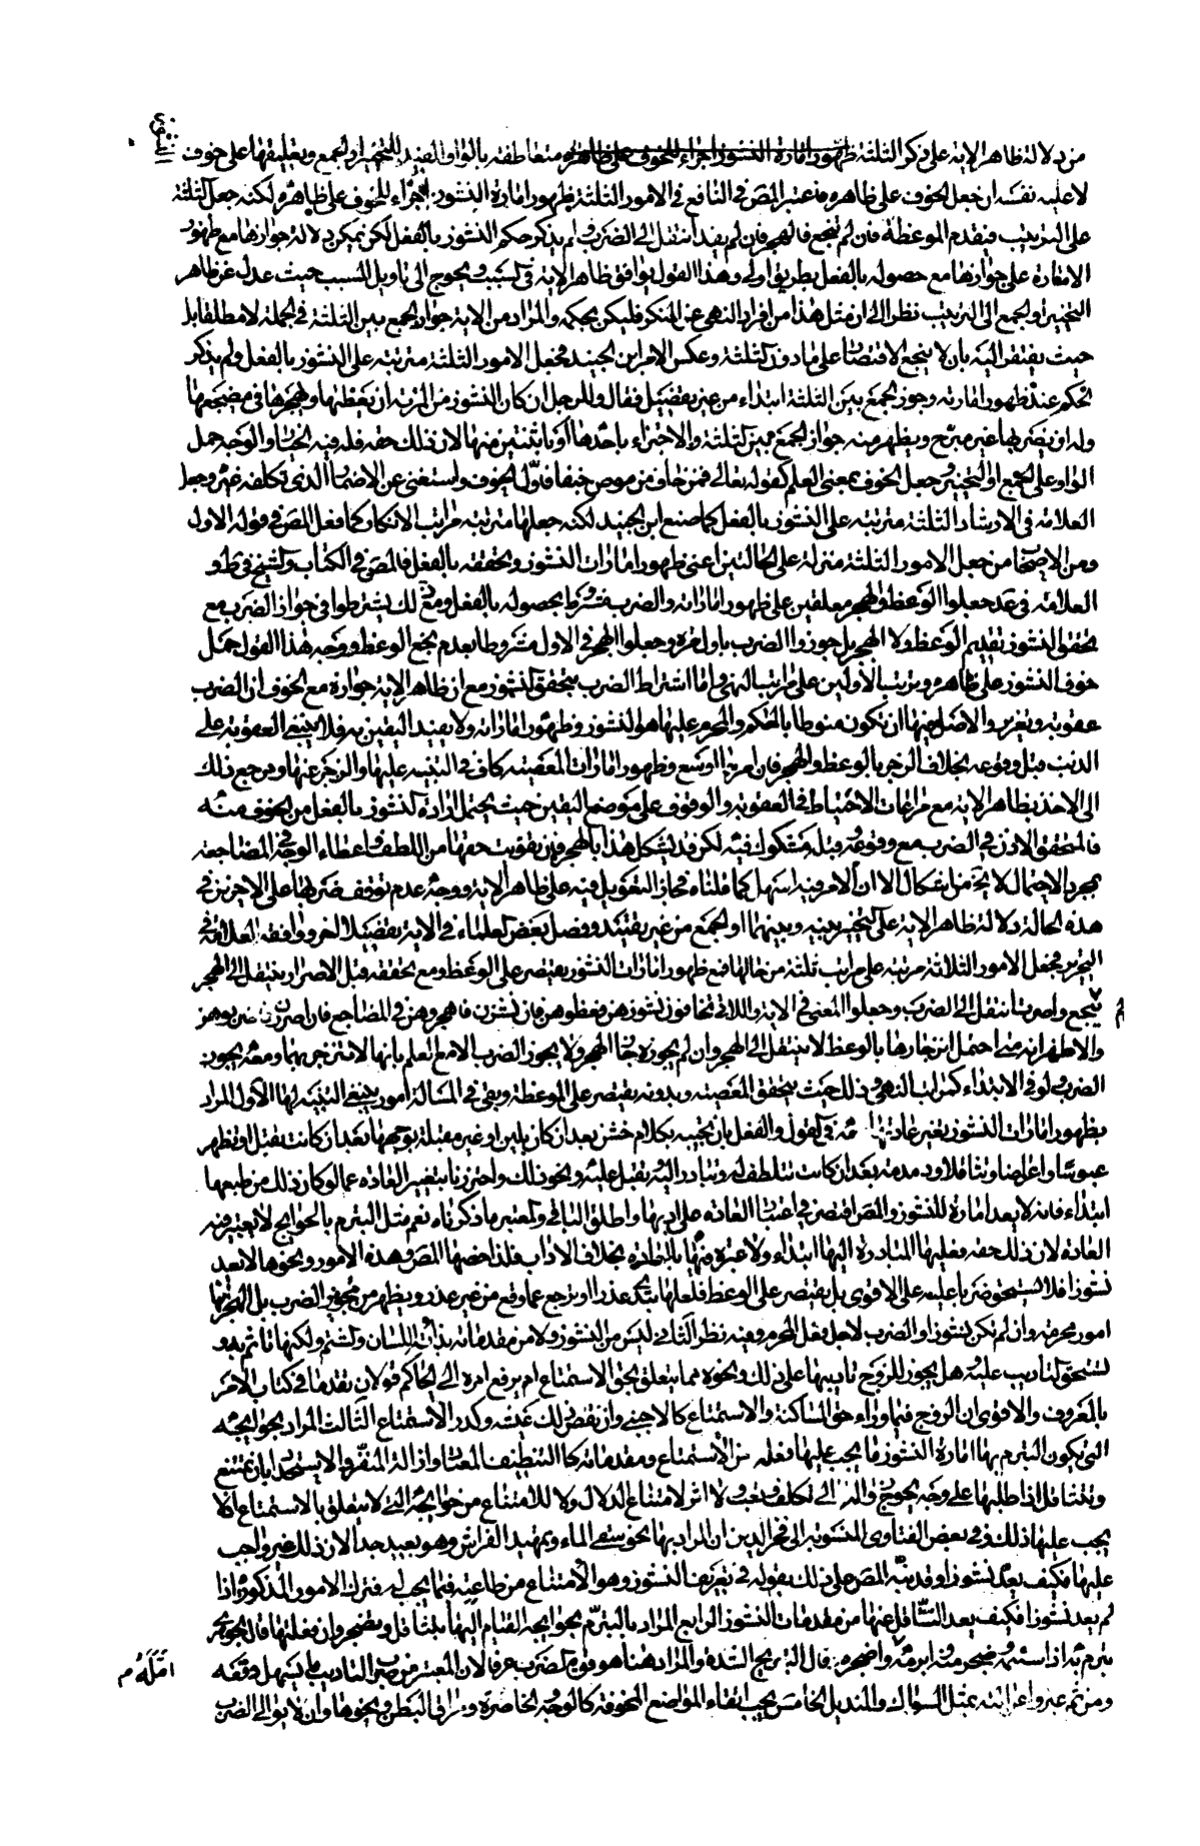 من دلالة ظاهر الاية على ذكر الثلثة ظهور امارة النشوز اجراء للخوف على ظاهره متعاطفة بالواو المفيد للتخيير او الجمع وتعليقها على خوف
لا عليه نفسه ان جعل الخوف على ظاهره فاعتبر المص في النافع في الامور الثلثة بظهور امارة النشوز اجراء للخوف على ظاهره لكنه جعل الثلثة
على الترتيب فيقدم الموعظة فان لم تنجع فالهجر فان لم يفد انتقل الى الضرب ولم يذكر حكم النشوز بالفعل لكن يمكن دلالة جوازها مع ظهور
الامارة على جوازها مع حصوله بالفعل بطريق اولى وهذا القول يوافق ظاهر الاية في السبب ويحوج الى تاويل المسبب حيث عدل عن ظاهر
التخيير او الجمع الى الترتيب نظرا الى ان مثل هذا من افراد النهى عن المنكر فليكن بحكمه والمراد من الاية جواز الجمع بين الثلثة في الجملة لا مطلقا بل
حيث يفتقر اليه بان لا ينجع الاقتصار على مادون الثلثة وعكس الامر ابن الجنيد فجعل الامور الثلثة مترتبة على النشوز بالفعل ولم يذكر
الحكم عند ظهور امارته وجوز الجمع بين الثلثة ابتداء من غير تفصيل فقال وللرجل ان كان النشوز من المرئة ان يعظها ويهجرها في مضجعها
وله ان يضربها غير مبرح ويظهر منه جواز الجمع بين الثلثة والاجتزاء باحدها او باثنتين منها لان ذلك حقه فله فيه الخيار والوجه حمل
الواو على الجمع او التخيير وجعل الخوف بمعنى العلم كقوله تعالى فمن خاف من موص جنفا فاول الخوف واستغنى عن الاضمار الذي تكلفه غيره وجعل
العلامة في الارشاد الثلثة مترتبة على النشوز بالفعل كما صنع ابن الجنيد لكنه جعلها مترتبة مراتب الانكار كما فعل المص في قوله الاول
ومن الاصحاب من جعل الامور الثلثة منزلة على الحالتين اعنى ظهور امارات النشوز وتحققه بالفعل فالمص في الكتاب والشيخ في ط و
العلامة في عد جعلوا الوعظ والهجر معلقين على ظهور اماراته والضرب مشروطا بحصوله بالفعل ومع ذلك لم يشترطوا في جواز الضرب مع
تحقق النشوز تقديم الوعظ ولا الهجر بل جوزوا الضرب باول مرة وجعلوا الهجر في الاول مشروطا بعدم نجع الوعظ ووجه هذا القول حمل
خوف النشوز على ظاهره وترتيب الاولين على مراتب النهى واما اشتراط الضرب بتحقق النشوز مع ان ظاهر الاية جوازه مع الخوف لان الضرب
عقوبة وتعزير والاصل فيها ان يكون منوطا بالمحكم والمحرم عليها هو النشوز وظهور اماراته ولا يفيد اليقين به فلا ينبغى العقوبة على
الذنب قبل وقوعه بخلاف الزجر بالوعظ والهجر فان امرهما اوسع وظهور امارات المعصية كاف في التنبيه عليها والزجر عنها ومرجع ذلك
الى الاخذ بظاهر الاية مع مراعات الاحتياط في العقوبة والوقوف على موضع اليقين حيث يحتمل ارادة النشوز بالفعل من الخوف منه
فالمتحقق الاذن في الضرب مع وقوعه وقبله مشكوك فيه لكن قد يشكل هذا بالهجر فان تفويت حقها من اللطف واعطاء الوجه في المضاجعة
بمجرد الاحتمال لا يخ من اشكال الا ان الامر فيه اسهل كما قلناه فجاز التعويل فيه على ظاهر الاية ووجه عدم توقف ضربها على الاخيرين في
هذه الحالة دلالة ظاهر الاية على التخيير بينه وبينهما او الجمع من غير تقييد وفصل بعض العلماء في الاية تفصيلا اخر ووافقه العلامة في
التحرير فجعل الامور الثلاثة مرتبة على مراتب ثلثة من حالها فمع ظهور امارات النشوز يقتصر على الوعظ ومع تحققه قبل الاصرار ينتقل الى الهجر
ينجع واصرت انتقل الى الضرب وجعلوا المعنى في الاية واللاتي تخافون نشوزهن فعظوهن فان نشزن فاهجروهن في المضاجع فان اصررن فاضربوهن
والاظهر انه متى احتمل انزجارها بالوعظ لا ينتقل الى الهجر وان لم يجوزه جاز الهجر ولا يجوز الضرب الا مع العلم بانها لا تنزجر بهما ومعه يجوز
الضرب ولو في الابتداء كمراتب النهى وذلك حيث يتحقق المعصية وبدونه يقتصر على الموعظة وبقى في المسالة امور ينبغى التنبيه لها الاول المراد
بظهور امارات النشوز تغير عادتها معه في القول والفعل بان تجيبه بكلام خشن بعد ان كان بلين او غير مقبلة بوجهها بعد ان كانت تقبل او تظهر
عبوسا واعراضا وتثاقلا ودمدمة بعد ان كانت تتلطف له وتبادر اليه وتقبل عليه ونحو ذلك واحترزنا بتغيير العادة عما لو كان ذلك من طبعها
ابتداء فانه لا يعد امارة للنشوز والمص اقتصر في اعتبار العادة على ادبها واطلق الباقي والمعتبر ما ذكرناه نعم مثل التبرم بالحوايج لا يعتبر فيه
العادة لان ذلك حقه فعليها المبادرة اليها ابتداء ولا عبرة فيها بالعادة بخلاف الاداب فلذا خصها المص وهذه الامور ونحوها لا يعد
نشوزا فلا تستحق ضربا عليه على الاقوى بل يقتصر على الوعظ فلعلها تبدى عذرا او ترجع عما وقع من غير عذر ويظهر من تجويز الضرب بل الهجر انها
امور محرمة وان لم تكن نشوزا والضرب لاجل فعل المحرم وفيه نظر الثاني ليس من النشوز ولا من مقدماته بذاءة اللسان والشتم ولكنها تاثم به و
تستحق التاديب عليه وهل يجوز للزوج تاديبها على ذلك ونحوه مما يتعلق بحق الاستمتاع ام يرفع امره الى الحاكم قولان تقدما في كتاب الامر
بالمعروف والاقوى ان الزوج فيما وراء حق المساكنة والاستمتاع كالاجنبي وان نغص ذلك عيشه وكدر الاستمتاع الثالث المراد بحوائجه
التي يكون التبرم بها امارة النشوز ما يجب عليها فعله من الاستمتاع ومقدماته كالتنظيف المعتاد وازالة المنفر والاستحداد بان تمتنع
وتتثاقل اذا طلبها على وجه يحوج زواله الى تكلف وتعب ولا اثر لامتناع الدلال ولا للامتناع من حوائجه التي لا يتعلق بالاستمتاع اذ لا
يجب عليها ذلك وفي بعض الفتاوى المنسوبة الى فخر الدين ان المراد بها نحو سقى الماء وتمهيد الفراش وهو بعيد جدا لان ذلك غير واجب
عليها فكيف يعد نشوزا وقد نبه المص على ذلك بقوله في تعريف النشوز وهو الامتناع من طاعته فيما يجب له فترك الامور المذكورة اذا
لم يعد نشوزا فكيف يعد التثاقل عنها من مقدمات النشوز الرابع المراد بالتبرم بحوائجه القيام اليها بتثاقل وتضجر وان فعلتها قال الجوهرى
تبرم به اذا سئمه وضجر منه وابرمه اضجره يقال التبريح الشدة والمراد هنا ما هو فوق الضرب عرفا لان المعتبر من ضرب التاديب ما يسهل وقعه
ومن ثم عبروا عن الته بمثل السواك والمنديل الخامس يجب اتقاء المواضع المخوفة كالوجه والخاصرة ومراق البطن ونحوها وان لا يوالى الضرب